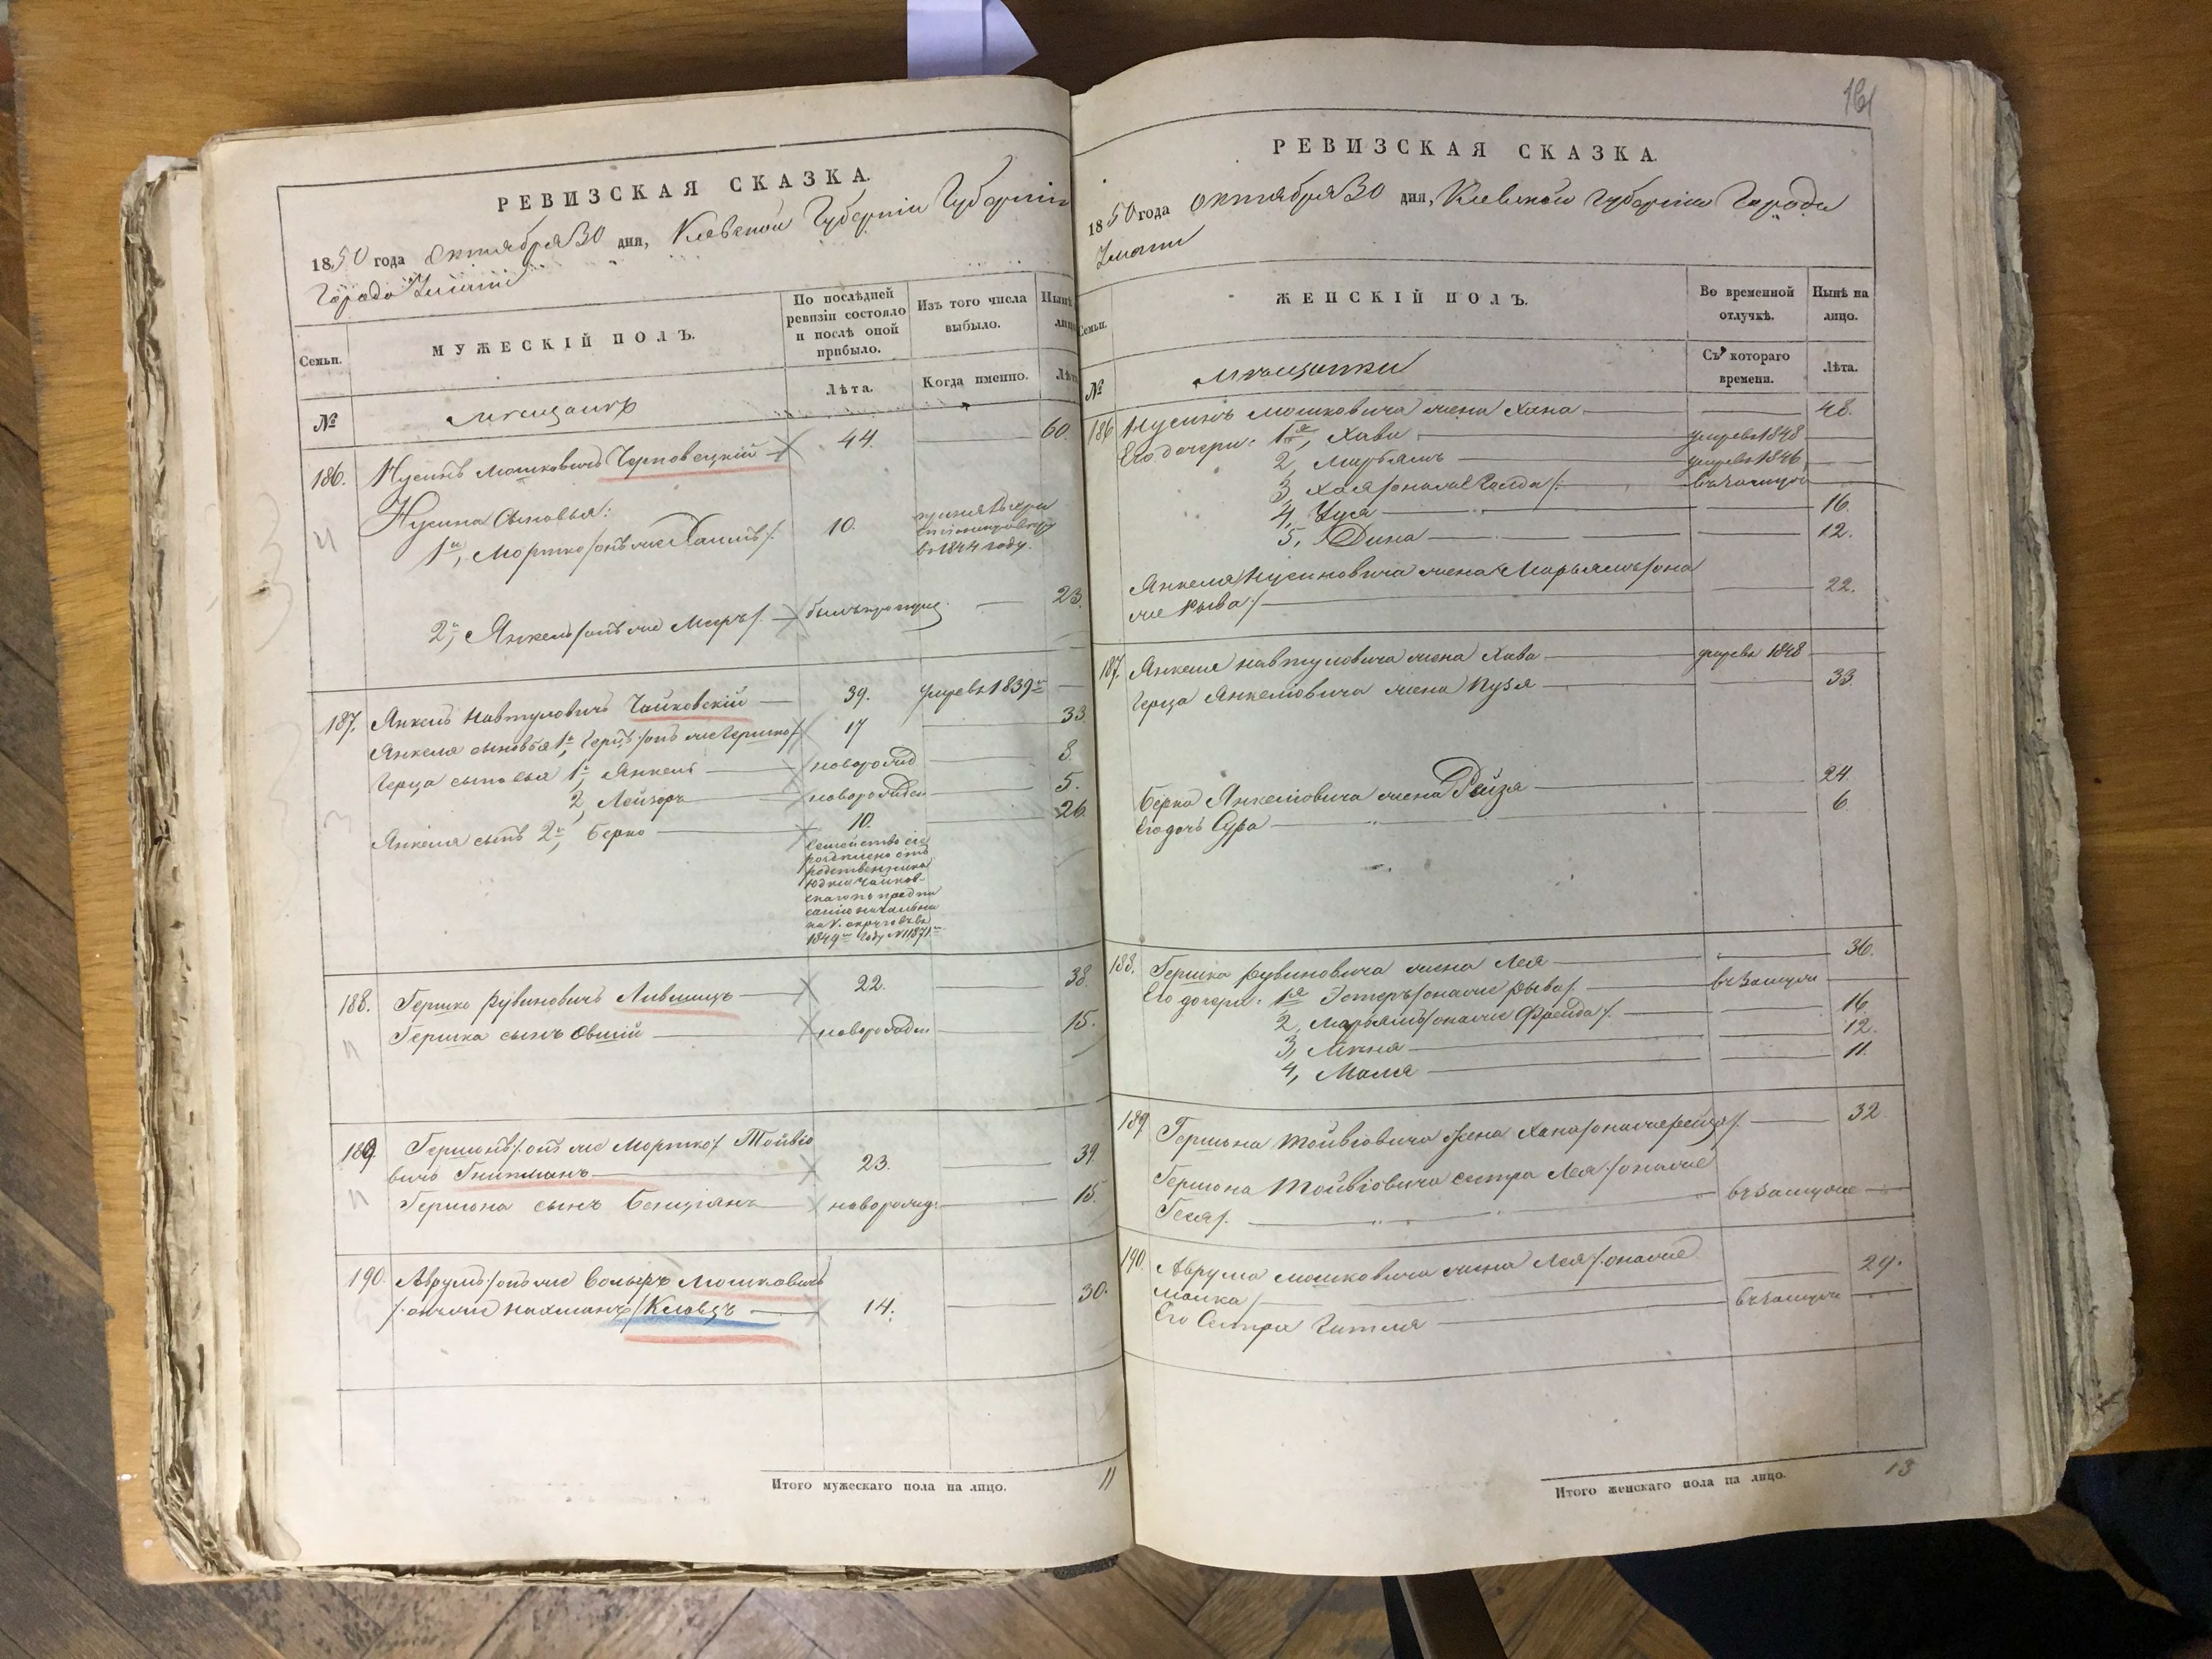 РЕВИЗСКАЯ СКАЗКА.
1850 года Октября 30 дня, Кіевской Губерніи Губерніи
Города Умани
Семьи.
МУЖЕСКІЙ ПОЛЪ.
По послѣдней ревизіи состояло и послѣ оной прибыло.
Изъ того числа выбыло.
Нынѣ
№
мещанъ
Лѣта.
Когда именно.
Лѣта
186. Нусинъ Мошковичъ Черновецкій 44. 60.
Нусина Сыновья:
1й, Мортко /онъ же Хаимъ/: 10.
в 1844 году.
2й, Янкель /онъ же Меръ/. былъ пропущ. 23.
187. Янкель Навтуловичъ Чайковскій 39. умеръ 1839го
Янкеля сыновья 1й, Герцъ /онъ же Гершко/ 17 33.
Герца сыновья 1й, Янкель новорожд 8.
2, Лейзоръ новорожден 5.
Янкеля сынъ 2й, Берко 10. 26.
Семейство сіе
родственника
1849го году № 11871
188. Гершко Рувиновичъ Лившицъ 22. 38.
Гершка сынъ Овшій новорожден 15.
189. Гершонъ /: онъ же Мортко/ Тойвіо
вичъ Гнипманъ 23. 39.
Гершона сынъ Бенціанъ новорожд. 15.
190. Аврумъ /онъ же Вольфъ Мошковичъ
/: онъ же Нахманъ / Кловцъ 14. 30.
Итого мужескаго пола на лицо. 11
161
РЕВИЗСКАЯ СКАЗКА.
1850 года Октября 30 дня, Кіевской Губерніи Города
Умани
Семьи.
ЖЕНСКІЙ ПОЛЪ.
Во временной отлучкѣ.
Нынѣ на лицо.
№
Мѣщанки
Съ котораго времени.
Лѣта.
186 Нусинъ Мошковича жена Хана 48.
Его дочери: 1я, Хава умерла 1848
2, Марьямъ умерла 1846
3, Хая /она же Голда/: въ замуж
4, Цуя 16.
5, Дина 12.
Янкеля Нусиновича жена Марьямъ /она
же Рыва/ 22.
187. Янкеля Навтуловича жена Хава умерла 1848
Герца Янкеліовича жена Пузя 33.
Берка Янкеліовича жена Рейзя 24.
Его дочь Сура 6
188. Гершка Рувиновича жена Лея 36.
Его дочери: 1я Эстеръ /она же Рыва/. въ замуж
2, Марьямъ /она же Фрейда/. 16.
3, Мехня 12.
4, Маля 11.
189 Гершона Тойвіовича жена Хана /она же Рейза/. 32
Гершона Тойвіовича сестра Лея /: она же
Геся/. въ замуже
190. Аврума Мошковича жена Лея /: она же
Малка/ 29.
Его Сестра Гитля въ замуж
Итого женскаго пола на лицо. 13